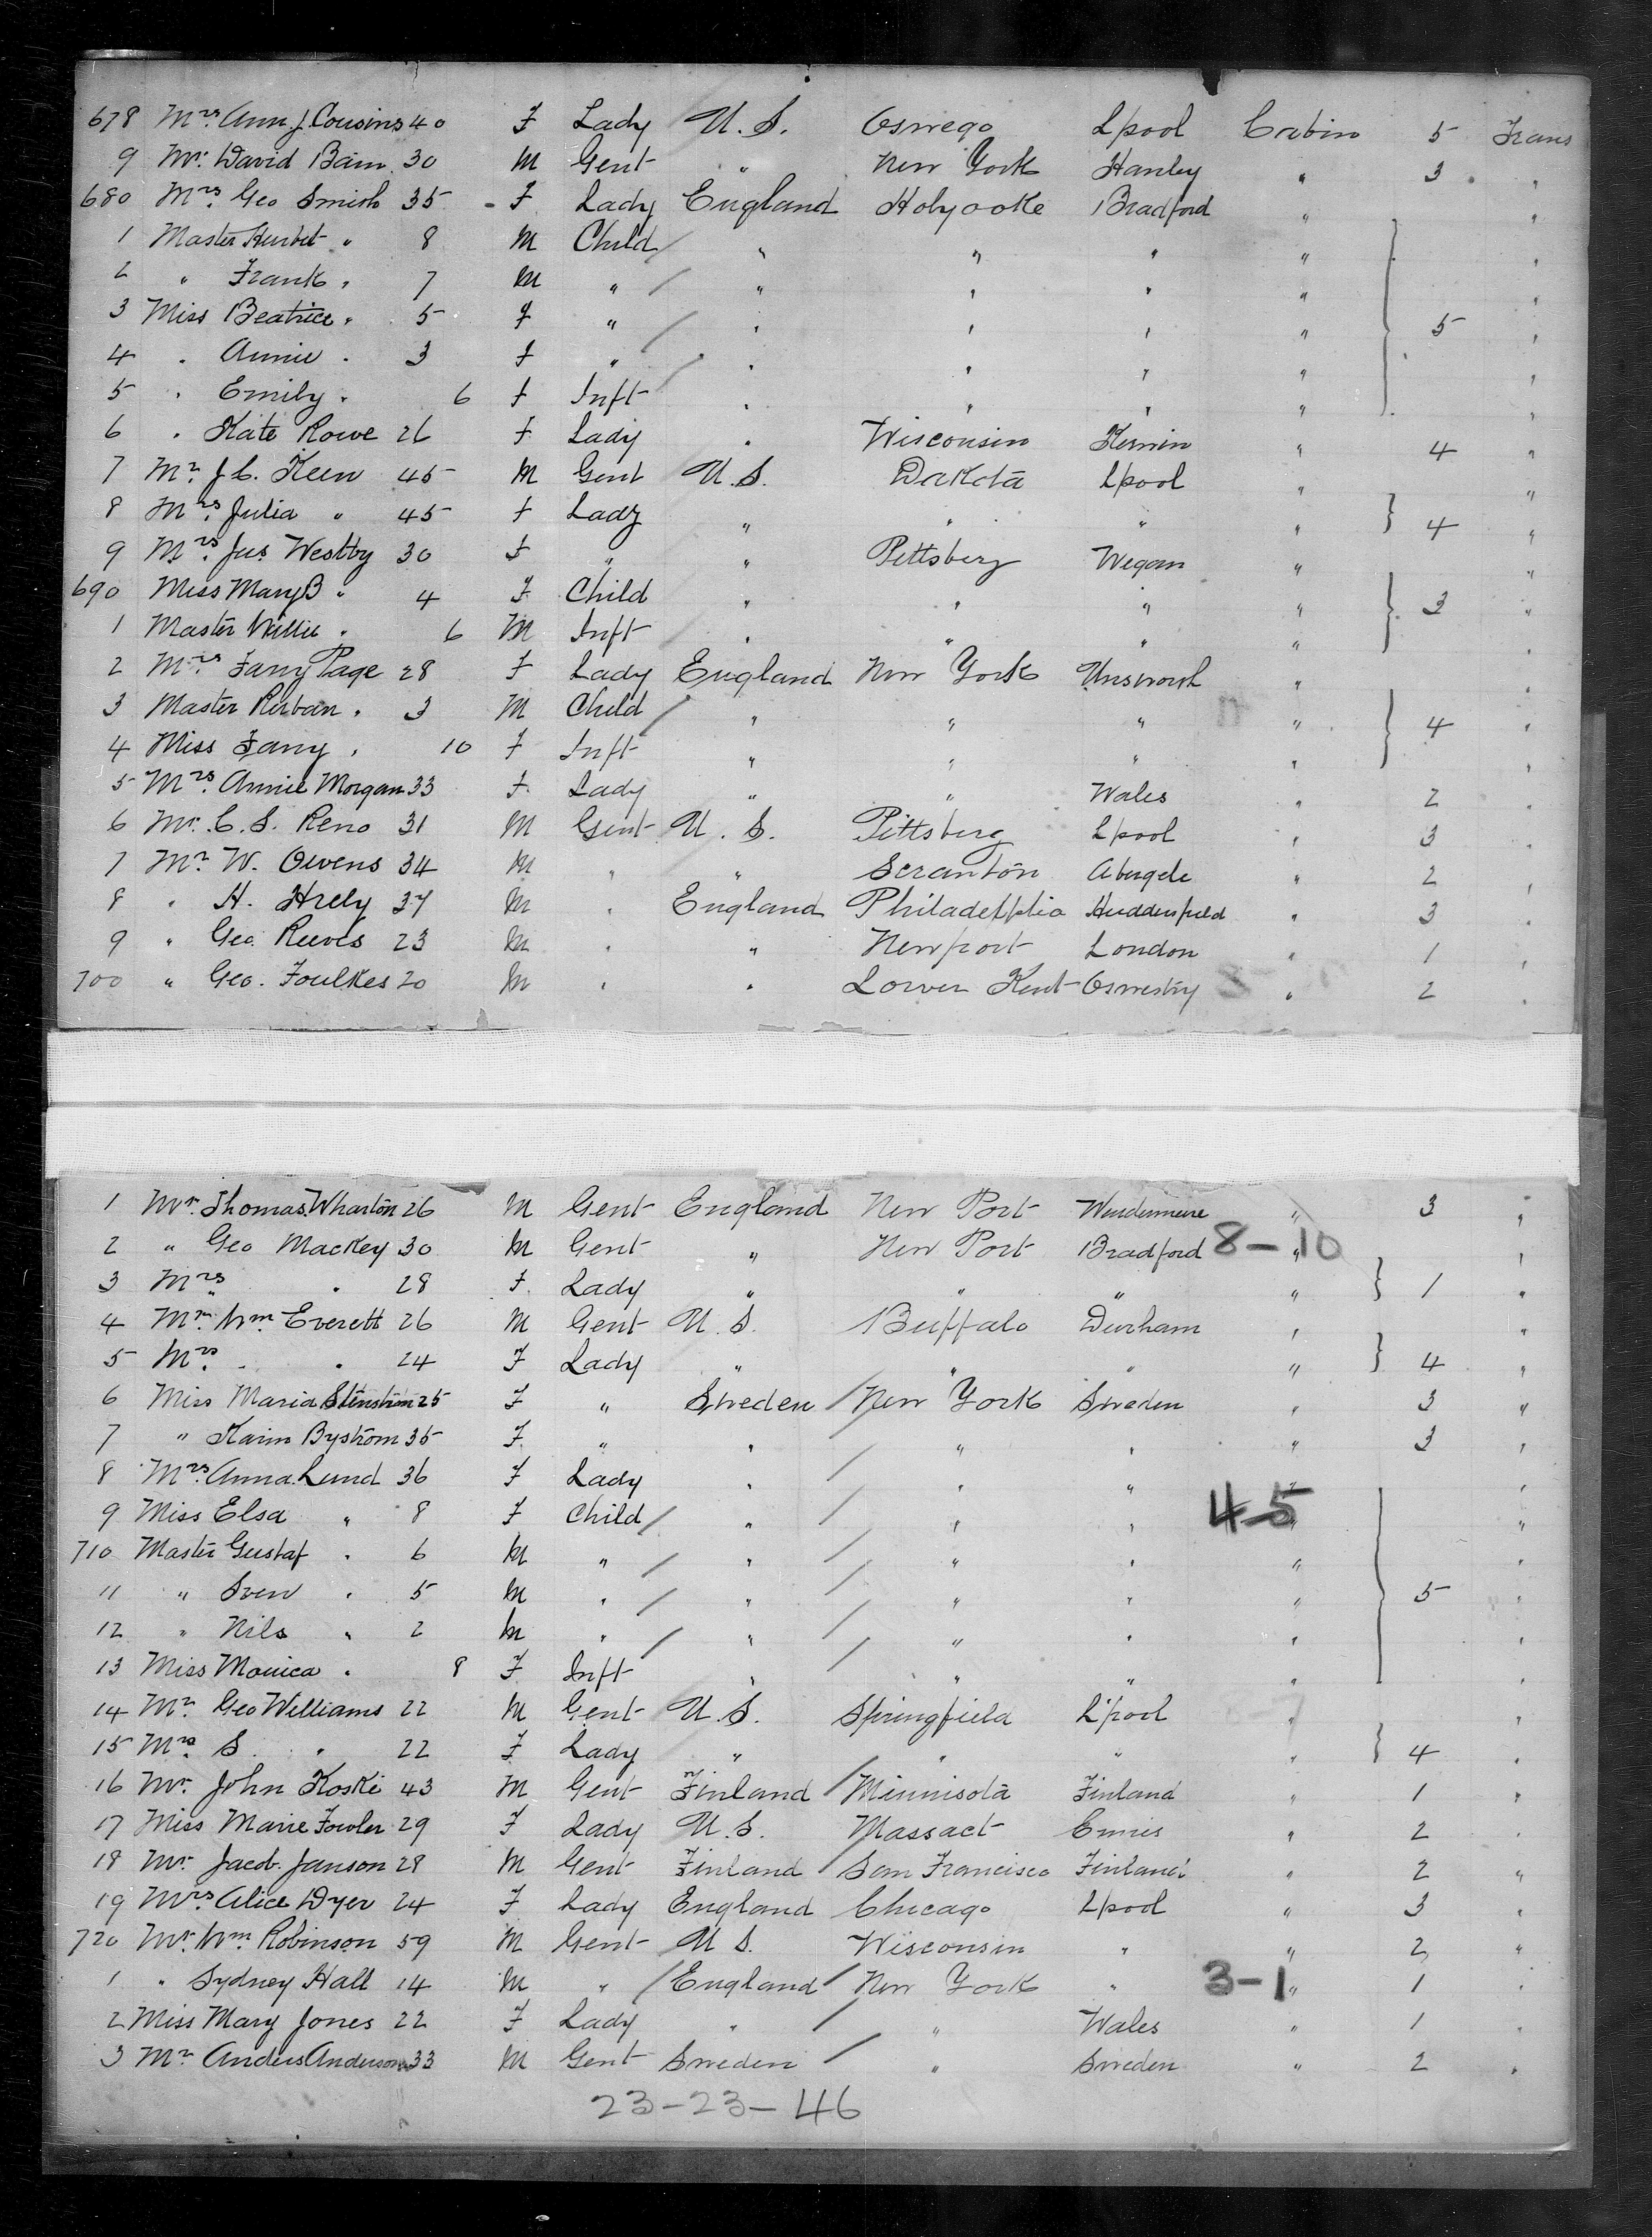 678 Mrs. Ann J. Cousins 40 F Lady U.S. Oswego Lpool Cabin 5 Trans
9 Mr. David Bain 30 M Gent " New York Hanley " 3 "
680 Mrs. Geo Smith 35 F Lady England Holyooke Bradford " "
1 Master Herbet " 8 M Child " " " " "
2 " Frank " 7 M " " " " " "
3 Miss Beatrice " 5 F " " " " " 5 "
4 " Annie " 3 F " " " " " "
5 " Emily " 6 F Inft " " " " "
6 " Kate Rowe 26 F Lady " Wisconsin " 4 "
7 Mr. J.C. Keen 45 M Gent U.S. Dakota Lpool " "
8 Mrs. Julia " 45 F Lady " " " " 4 "
9 Mrs. Jas Westby 30 F " " Pittsberg Wegan " "
690 Miss Mary B " 4 F Child " " " " 3 "
1 Master Willie " 6 M Inft " " " " "
2 Mrs. Fany Page 28 F Lady England New York Unsworth " "
3 Master " 3 M Child " " " " 4 "
4 Miss Fany " 10 F Inft " " " " "
5 Mrs. Annie Morgan 33 F Lady " " Wales " 2 "
6 Mr. C.S. Reno 31 M Gent U.S. Pittsberg Lpool " 3 "
7 Mr W. Owens 34 M " " Scranton Abergele " 2 "
8 " H. Hrely 37 M " England Philadelphia Huddersfield " 3 "
9 " Geo. Reeves 23 M " " Newport London " 1 "
700 " Geo. Foulkes 20 M " " Lower Kent Oswestry " 2 "
1 Mr. Thomas Wharton 26 M Gent England New Port Windermere " 3 "
2 " Geo Mackey 30 M Gent " New Port Bradford 8-10 " "
3 Mrs. " " 28 F Lady " " " " 1 "
4 Mr. Wm. Everett 26 M Gent U.S. Buffalo Durham " "
5 Mrs. " " 24 F Lady " " " " 4 "
6 Miss Maria Stenström 25 F " Sweden New York Sweden " 3 "
7 " Karin Byström 35 F " " " " " 3 "
8 Mrs. Anna Lund 36 F Lady " " " " "
9 Miss Elsa " 8 F Child " " " 4-5 " "
710 Master Gustaf " 6 M " " " " " "
11 " Sven " 5 M " " " " " 5 "
12 " Nils " 2 M " " " " " "
13 Miss Monica " 8 F Inft " " " " "
14 Mr. Geo Williams 22 M Gent U.S. Springfield L'pool " "
15 Mrs. S. " 22 F Lady " " " " 4 "
16 Mr. John Koski 43 M Gent Finland Minnisota Finland " 1 "
17 Miss Marie Fowler 29 F Lady U.S. Massact Ennis " 2 "
18 Mr. Jacob Janson 28 M Gent Finland San Francisco Finland " 2 "
19 Mrs. Alice Dyer 24 F Lady England Chicago Lpool " 3 "
720 Mr. Wm. Robinson 59 M Gent U.S. Wisconsin " " 2 "
1 " Sydney Hall 14 M " England New York " 3-1 " 1 "
2 Miss Mary Jones 22 F Lady " " Wales " 1 "
3 Mr. Anders Anderson 33 M Gent Sweden " Sweden " 2 "
23-23-46